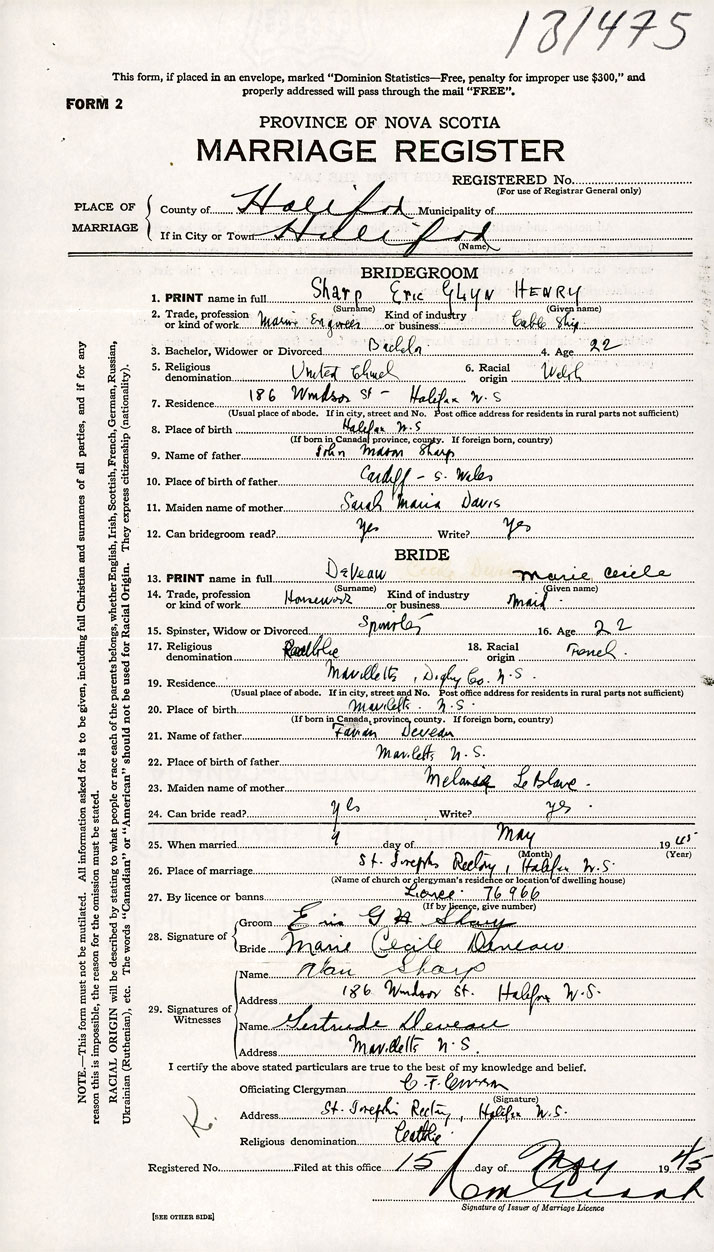 131475
This form, if placed in an envelope, marked "Dominion Statistics—Free, penalty for improper use $300," and
properly addressed will pass through the mail "FREE".
FORM 2
PROVINCE OF NOVA SCOTIA
MARRIAGE REGISTER
REGISTERED No.
(For use of Registrar General only)
PLACE OF MARRIAGE
County of Halifax Municipality of
If in City or Town Halifax
(Name)
BRIDEGROOM
1. PRINT name in full Sharp Eric GLYN HENRY
(Surname) (Given name)
2. Trade, profession or kind of work Marine Engineer Kind of industry or business Cable Ship
3. Bachelor, Widower or Divorced Bachelor 4. Age 22
5. Religious denomination United Church 6. Racial origin Welsh
7. Residence 186 Windsor St - Halifax N.S
(Usual place of abode. If in city, street and No. Post office address for residents in rural parts not sufficient)
8. Place of birth Halifax N.S
(If born in Canada province, county. If foreign born, country)
9. Name of father John Mason Sharp
10. Place of birth of father Cardiff - S. Wales
11. Maiden name of mother Sarah Maria Davis
12. Can bridegroom read? Yes Write? Yes
BRIDE
13. PRINT name in full Deveau Marie Cecile
(Surname) (Given name)
14. Trade, profession or kind of work Housework Kind of industry or business Maid
15. Spinster, Widow or Divorced Spinster 16. Age 22
17. Religious denomination 18. Racial origin French.
19. Residence Mavilletts, Digby Co. N.S.
(Usual place of abode. If in city, street and No. Post office address for residents in rural parts not sufficient)
20. Place of birth Maviletts. N.S.
(If born in Canada, province, county. If foreign born, country)
21. Name of father Deveau
22. Place of birth of father Maviletts N.S.
23. Maiden name of mother Melanie LeBlanc.
24. Can bride read? yes Write? yes.
25. When married 9 day of May 1945
(Month) (Year)
26. Place of marriage St. Josephs Rectory, Halifax N.S.
(Name of church or clergyman's residence or location of dwelling house)
27. By licence or banns Licence. 76966
(If by licence, give number)
28. Signature of
Groom Eric G H Sharp
Bride Marie Cecile Deveau
29. Signatures of Witnesses
Name Sharp
Address 186 Windsor St. Halifax N.S.
Name Gertrude Deveau
Address Maviletts N.S.
I certify the above stated particulars are true to the best of my knowledge and belief.
Officiating Clergyman C. F. Curran
(Signature)
Address St. Josephs Rectory, Halifax N.S.
Religious denomination Catholic.
Registered No. Filed at this office 15 day of May 1945
Signature of Issuer of Marriage Licence
[SEE OTHER SIDE]
NOTE.—This form must not be mutilated. All information asked for is to be given, including full Christian and surnames of all parties, and if for any
reason this is impossible, the reason for the omission must be stated.
RACIAL ORIGIN will be described by stating to what people or race each of the parents belongs, whether English, Irish, Scottish, French, German, Russian,
Ukrainian (Ruthenian), etc. The words "Canadian" or "American" should not be used for Racial Origin. They express citizenship (nationality).